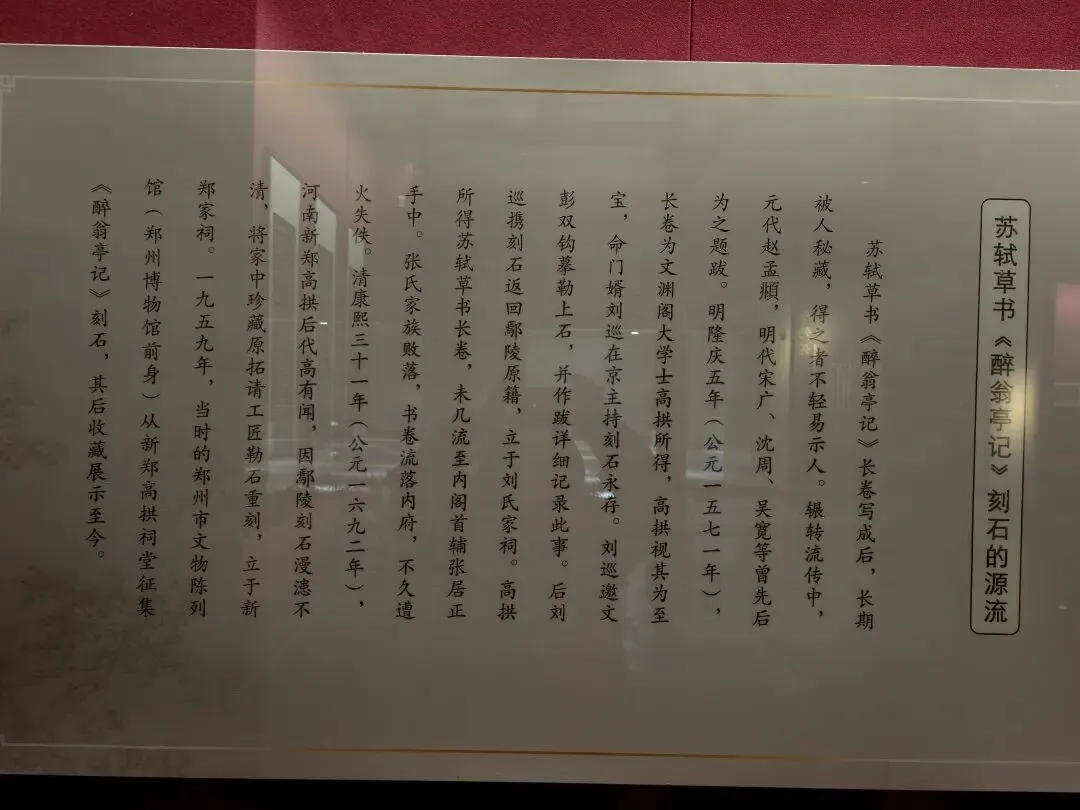 苏轼草书《醉翁亭记》刻石的源流
苏轼草书《醉翁亭记》长卷写成后，长期
被人秘藏，得之者不轻易示人。辗转流传中，
元代赵孟頫，明代宋广、沈周、吴宽等曾先后
为之题跋。明隆庆五年（公元一五七一年），
长卷为文渊阁大学士高拱所得，高拱视其为至
宝，命门婿刘巡在京主持刻石永存。刘巡邀文
彭双钩摹勒上石，并作跋详细记录此事。后刘
巡携刻石返回鄢陵原籍，立于刘氏家祠。高拱
所得苏轼草书长卷，未几流至内阁首辅张居正
手中。张氏家族败落，书卷流落内府，不久遭
火失佚。清康熙三十一年（公元一六九二年），
河南新郑高拱后代高有闻，因鄢陵刻石漫漶不
清，将家中珍藏原拓请工匠勒石重刻，立于新
郑家祠。一九五九年，当时的郑州市文物陈列
馆（郑州博物馆前身）从新郑高拱祠堂征集
《醉翁亭记》刻石，其后收藏展示至今。